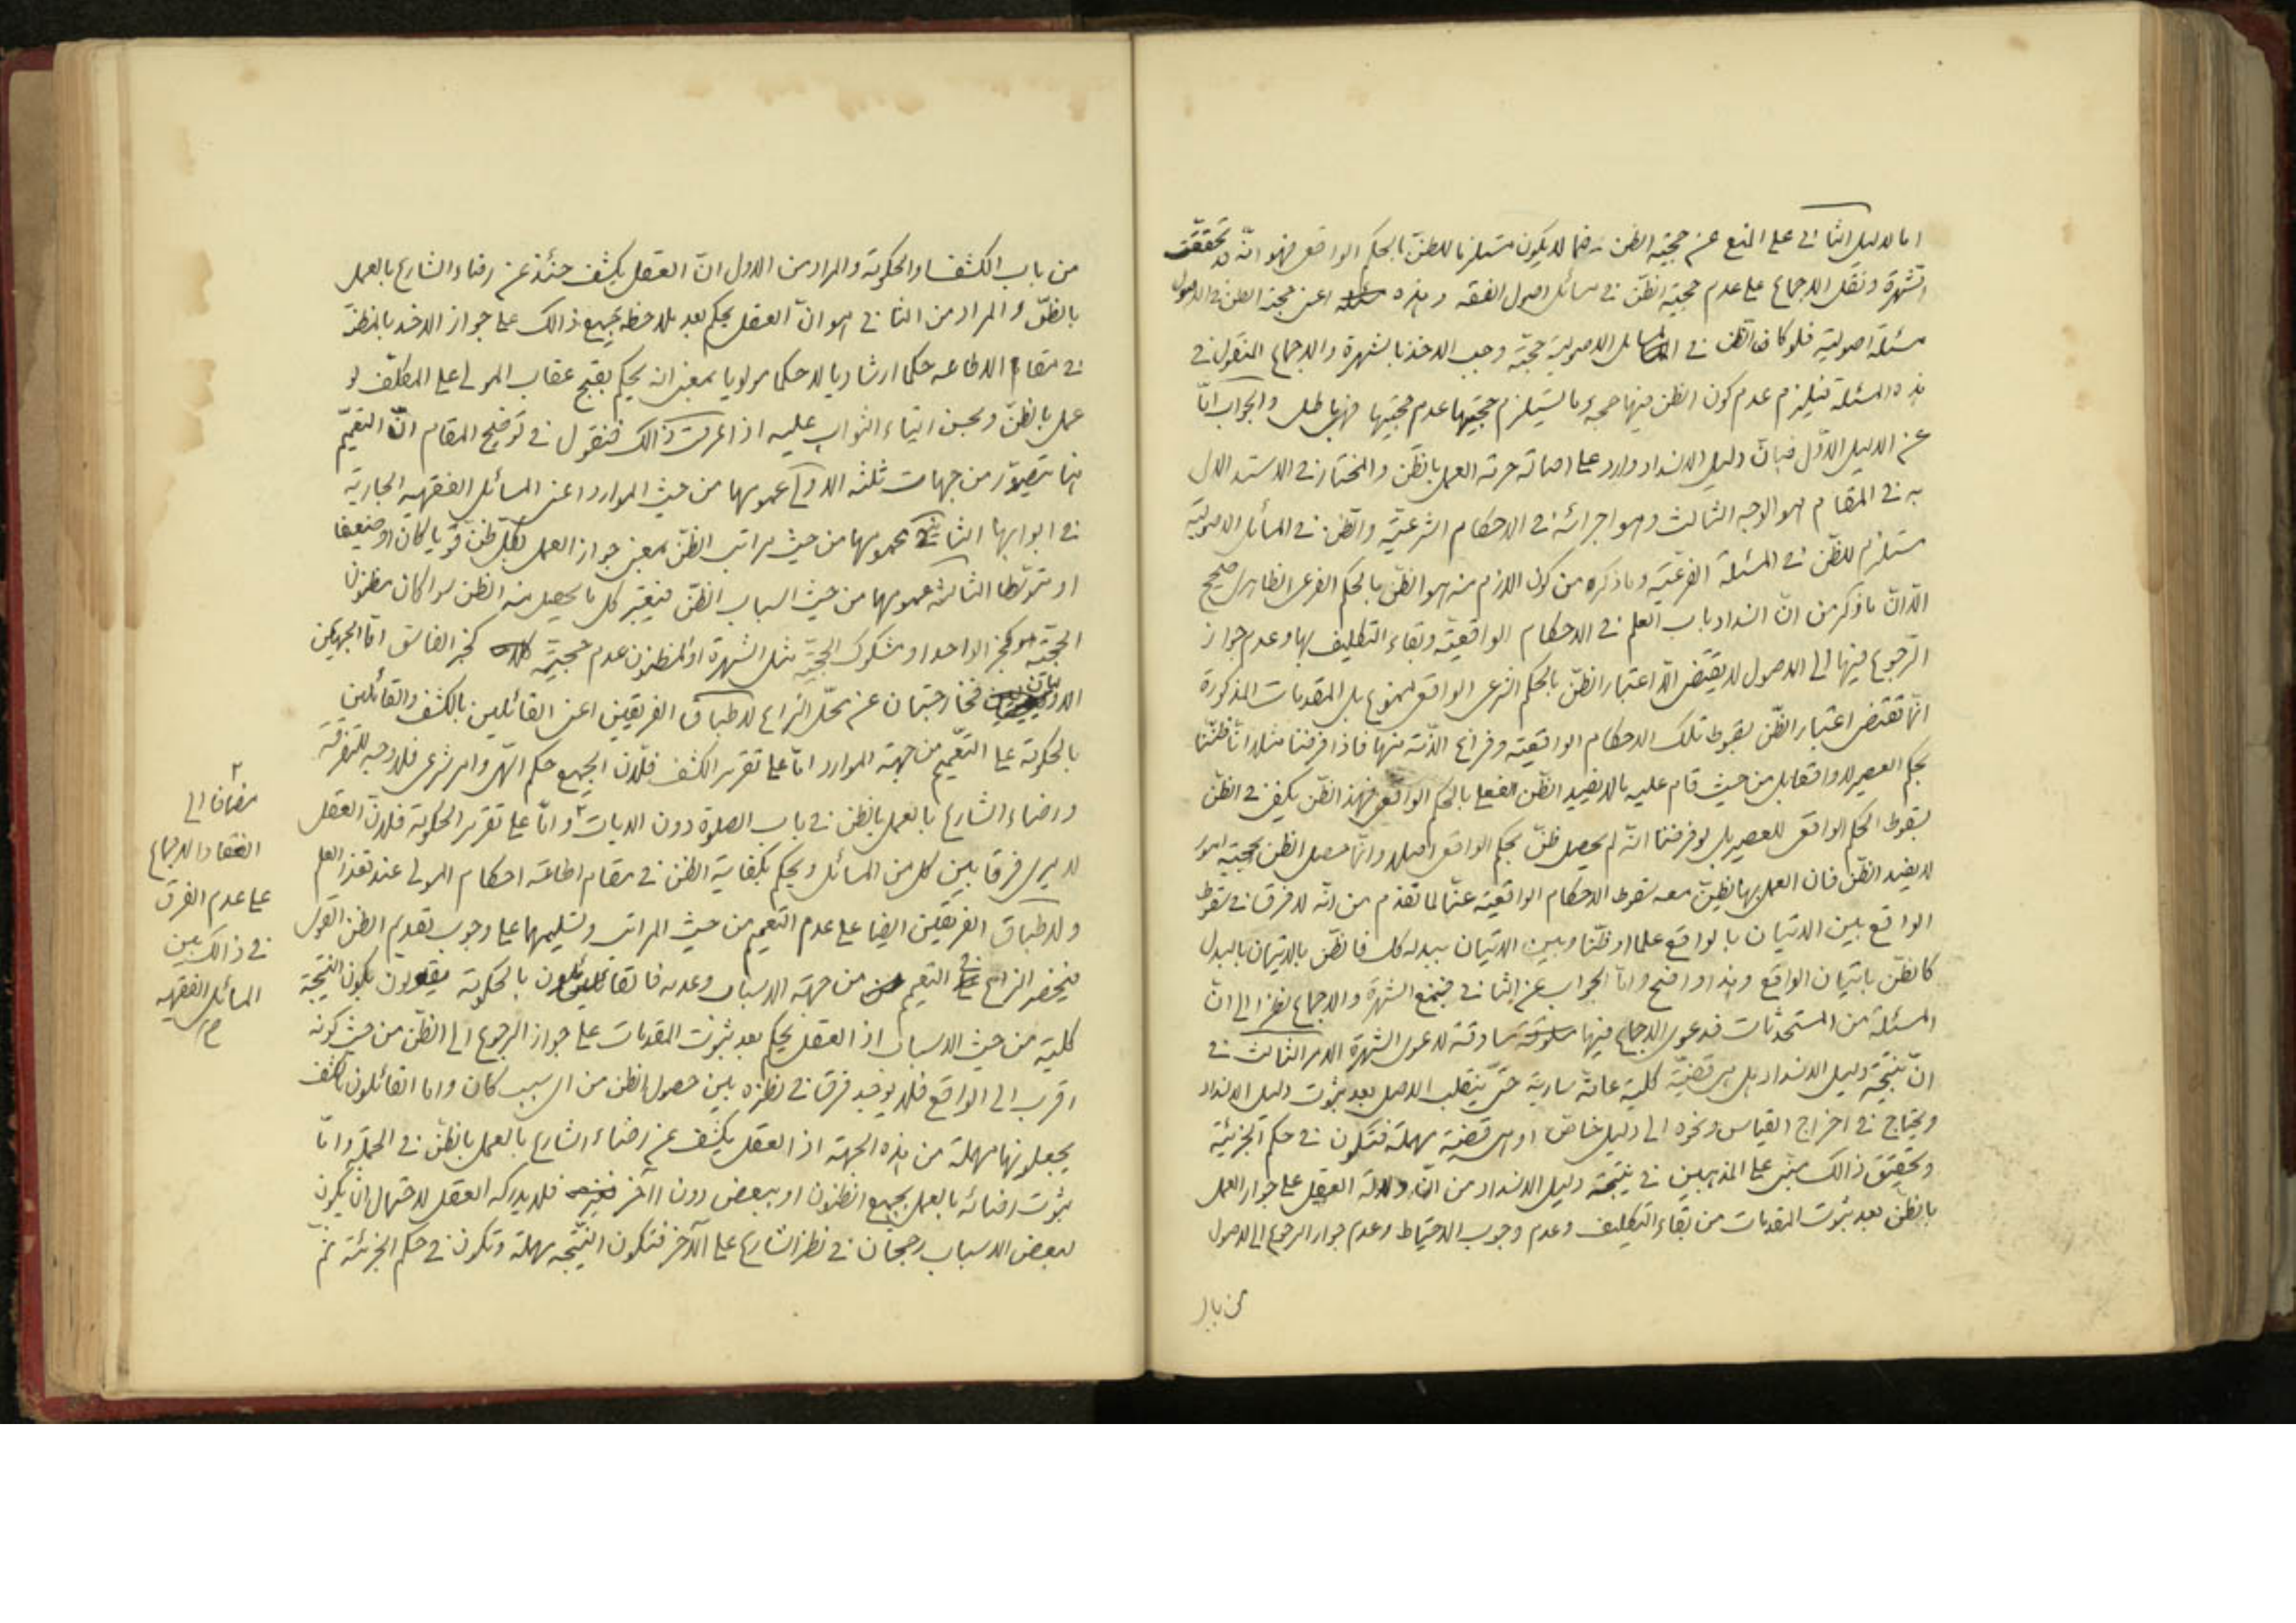 اما الدليل الثانى على المنع عن حجية الظن فيما لا يكون مستلزما للظن بالحكم الواقعى فهو انّه قد تحققت
الشهرة ونقل الاجماع على عدم حجية الظنّ فى مسائل اصول الفقه وهذه اعنى حجية الظن فى الاصول
مسئلة اصوليّة فلو كان الظن فى المسائل الاصولية حجّة وجب الاخذ بالشهرة والاجماع المنقول فى
هذه المسئلة فيلزم عدم كون الظن فيها حجة وما يستلزم حجيتها عدم حجيتها فهو باطل والجواب امّا
عن الدليل الاوّل فبانّ دليل الانسداد وارد على اصالة حرمة العمل بالظنّ والمختار فى الاستدلال
به فى المقام هو الوجه الثالث وهو اجرائه فى الاحكام الشرعيّة والظن فى المسائل الاصوليّة
مستلزم للظّن فى المسئلة الفرعيّة وما ذكره من كون اللازم منه هو الظنّ بالحكم الفرعى الظاهرى صحيح
الّا انّ ما ذكر من انّ انسداد باب العلم فى الاحكام الواقعيّة وبقاء التكليف بها وعدم جواز
الرّجوع فيها الى الاصول لا يقتضى الّا اعتبار الظنّ بالحكم الشرعى الواقعى ممنوع بل المقدمات المذكورة
انّما تقتضى اعتبار الظّن بسقوط تلك الاحكام الواقعيّة وفراغ الذّمة منها فاذا فرضنا مثلا انّا ظننّا
بحكم العصير لا واقعا بل من حيث قام عليه ما لا يفيد الظّن الفعلى بالحكم الواقعى فهذا الظّن يكفى فى الظنّ
بسقوط الحكم الواقعى للعصير بل لو فرضنا انّه لم يحصل ظنّ بحكم الواقعى اصلا وانّما حصل الظن بحجية امور
لا يفيد الظنّ فان العمل بها يظنّ معه سقوط الاحكام الواقعيّة عنّا لما تقدم من انّه لا فرق فى سقوط
الواقع بين الاتيان بالواقع علما او ظنّا وبين الاتيان ببدله كك فالظنّ بالاتيان بالبدل
كالظنّ باتيان الواقع وهذا واضح وامّا الجواب عن الثانى فبمنع الشهرة والاجماع نظرا الى انّ
المسئلة من المستحدثات فدعوى الاجماع فيها مساوقة لدعوى الشهرة الامر الثالث فى
انّ نتيجة دليل الانسداد هل هى قضيّة كلّية عامّة سارية حتّى ينقلب الاصل بعد ثبوت دليل الانسداد
ويحتاج فى اخراج القياس ونحوه الى دليل خاصّ او هى قضيّة مهملة فتكون فى حكم الجزئيّة
وتحقيق ذالك مبنى على المذهبين فى نتيجة دليل الانسداد من انّ دلالة العقل على جواز العمل
بالظّن بعد ثبوت المقدمات من بقاء التكليف وعدم وجوب الاحتياط وعدم جواز الرجوع الى الاصول
من باب
من باب الكشف او الحكومة والمراد من الاول انّ العقل يكشف حنئذ عن رضاء الشارع بالعمل
بالظنّ والمراد من الثانى هو انّ العقل يحكم بعد ملاحظة جميع ذالك على جواز الاخذ بالظنّ
فى مقام الاطاعه حكما ارشاديا لا حكما مولويا بمعنى انه يحكم بقبح عقاب المولى على المكلّف لو
عمل بالظنّ وبحسن ايتاء الثواب عليه اذا عرفت ذالك فنقول فى توضيح المقام انّ التعميم
انما يتصوّر من جهات ثلثه الاولى عمومها من حيث الموارد اعنى المسائل الفقهيه الجارية
فى ابوابها الثانية عمومها من حيث مراتب الظنّ بمعنى جواز العمل بكلّ ظنّ قويا كان او ضعيفا
او متوسّطا الثالثة عمومها من حيث اسباب الظنّ فيعتبر كل ما يحصل منه الظن سوا كان مظنون
الحجيّة كخبر الواحد او مشكوك الحجيّة مثل الشهرة او المظنون عدم حجيّته كخبر الفاسق امّا الجهتان
الاوليان فخارجتان عن محلّ النزاع لاطباق الفريقين اعنى القائلين بالكشف والقائلين
بالحكومة على التعّميم من جهة الموارد امّا على تقرير الكشف فلانّ الجميع حكم الهّى وامر شرعى فلا وجه للتفرقة
ورضاء الشارع بالعمل بالظن فى باب الصلوة دون الديات ٢ وامّا على تقرير الحكومة فلانّ العقل
لا يرى فرقا بين كل من المسائل ويحكم بكفاية الظن فى مقام اطاعة احكام المولى عند تعذر العلم
ولاطباق الفريقين ايضا على عدم التعميم من حيث المراتب وتسليمهما على وجوب تقديم الظن القوى
فينحصر النزاع فى التعميم من جهة الاسباب وعدمه فالقائلون بالحكومة يقولون بكون النتيجة
كلية من حيث الاسباب اذ العقل يحكم بعد ثبوت المقدمات على جواز الرجوع الى الظنّ من حيث كونه
اقرب الى الواقع فلا يوجد فرق فى نظره بين حصول الظن من اى سبب كان واما القائلون بالكشف
يجعلونها مهملة من هذه الجهة اذ العقل يكشف عن رضاء الشارع بالعمل بالظنّ فى الجملة وامّا
ثبوت رضائه بالعمل بجميع الظنون او ببعض دون آخر فلا يدركه العقل لاحتمال ان يكون
لبعض الاسباب رجحان فى نظر الشارع على الآخر فتكون النتيجه مهملة وتكون فى حكم الجزئية ثمّ
٢
مضافا الى
انعقاد الاجماع
على عدم الفرق
فى ذالك بين
المسائل الفقهيه
م